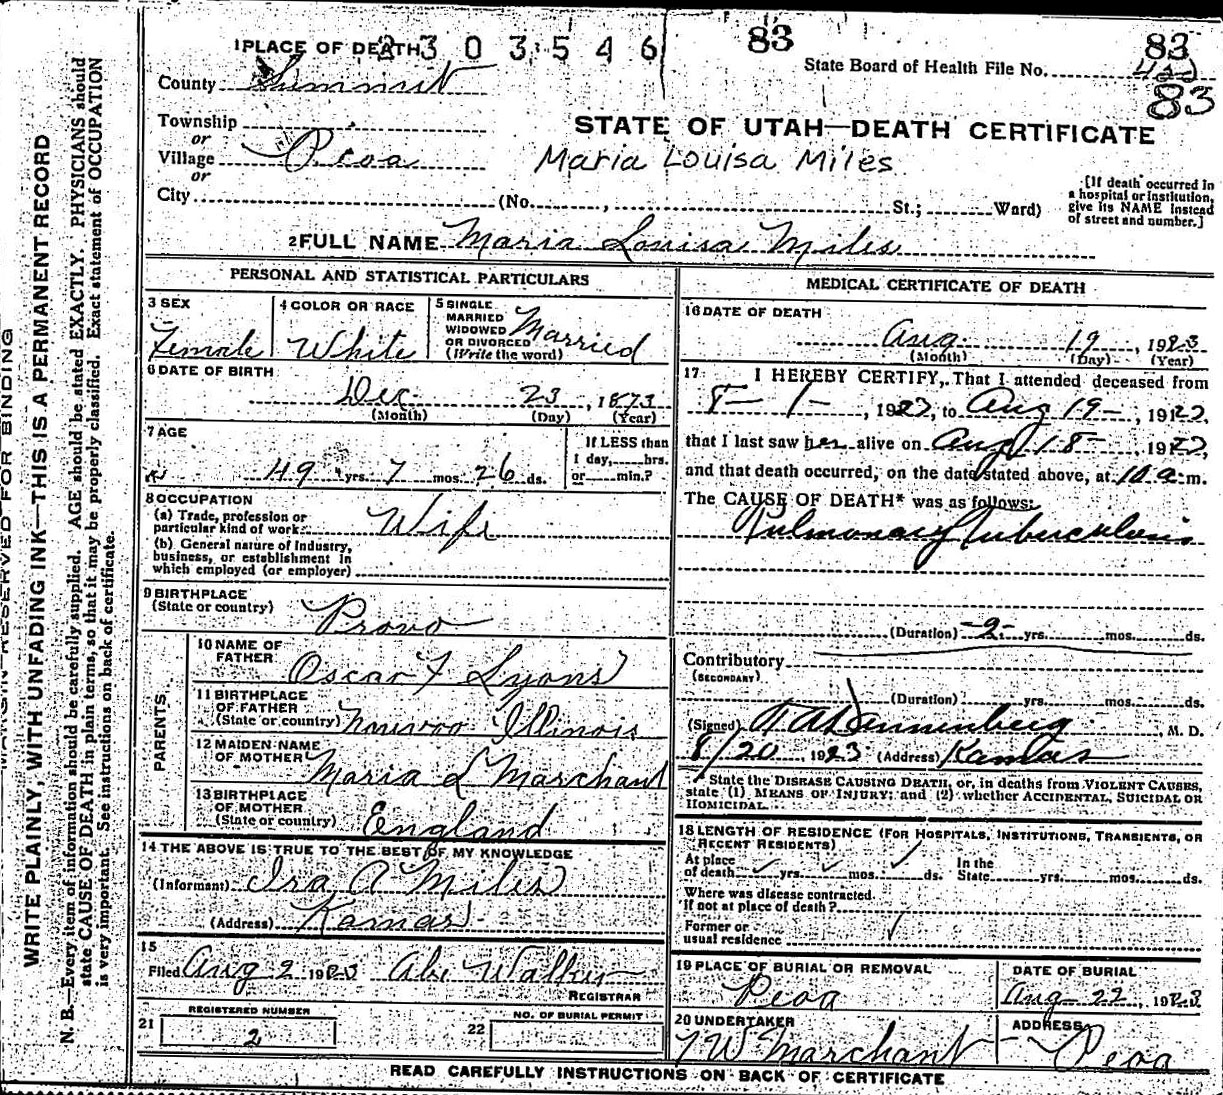 1 PLACE OF DEATH
2303546
83
83
State Board of Health File No.
83
County Summit
Township
or
Village Peoa
or
City (No. , St.; Ward)
STATE OF UTAH—DEATH CERTIFICATE
Maria Louisa Miles
[If death occurred in
a hospital or institution,
give its NAME instead
of street and number.]
2 FULL NAME Maria Louisa Miles
PERSONAL AND STATISTICAL PARTICULARS
3 SEX
Female
4 COLOR OR RACE
White
5 SINGLE
MARRIED
WIDOWED
OR DIVORCED
(Write the word)
Married
6 DATE OF BIRTH
Dec 23, 1873
(Month) (Day) (Year)
7 AGE
49 yrs. 7 mos. 26 ds.
If LESS than
1 day, hrs.
or min.?
8 OCCUPATION
(a) Trade, profession or
particular kind of work Wife
(b) General nature of industry,
business, or establishment in
which employed (or employer)
9 BIRTHPLACE
(State or country) Provo
PARENTS
10 NAME OF
FATHER Oscar F Lyons
11 BIRTHPLACE
OF FATHER
(State or country) Nauvoo Illinois
12 MAIDEN NAME
OF MOTHER Maria L Marchant
13 BIRTHPLACE
OF MOTHER
(State or country) England
14 THE ABOVE IS TRUE TO THE BEST OF MY KNOWLEDGE
(Informant) Ira A Miles
(Address) Kamas
15
Filed Aug 2 1923 Abe Walker
REGISTRAR
REGISTERED NUMBER
21 2
NO. OF BURIAL PERMIT
22
MEDICAL CERTIFICATE OF DEATH
16 DATE OF DEATH
Aug 19, 1923
(Month) (Day) (Year)
17 I HEREBY CERTIFY, That I attended deceased from
8-1-, 1922, to Aug 19-, 1922,
that I last saw her alive on Aug 18-, 1922,
and that death occurred, on the date stated above, at 10 a.m.
The CAUSE OF DEATH* was as follows:
Pulmonary Tuberculosis
(Duration) -2- yrs. mos. ds.
Contributory
(SECONDARY)
(Duration) yrs. mos. ds.
(Signed) Dannenberg, M. D.
8/20, 1923 (Address) Kamas
State the DISEASE CAUSING DEATH, or, in deaths from VIOLENT CAUSES,
state (1) MEANS OF INJURY; and (2) whether ACCIDENTAL, SUICIDAL OR
HOMICIDAL.
18 LENGTH OF RESIDENCE (FOR HOSPITALS, INSTITUTIONS, TRANSIENTS, OR
RECENT RESIDENTS)
At place
of death yrs. mos. ds.
In the
State yrs. mos. ds.
Where was disease contracted.
If not at place of death?
Former or
usual residence
19 PLACE OF BURIAL OR REMOVAL
Peoa
DATE OF BURIAL
Aug 22, 1923
20 UNDERTAKER
W Marchant
ADDRESS
Peoa
READ CAREFULLY INSTRUCTIONS ON BACK OF CERTIFICATE
MARGIN RESERVED FOR BINDING
WRITE PLAINLY, WITH UNFADING INK—THIS IS A PERMANENT RECORD
N. B.—Every item of information should be carefully supplied. AGE should be stated EXACTLY. PHYSICIANS should
state CAUSE OF DEATH in plain terms, so that it may be properly classified. Exact statement of OCCUPATION
is very important. See instructions on back of certificate.